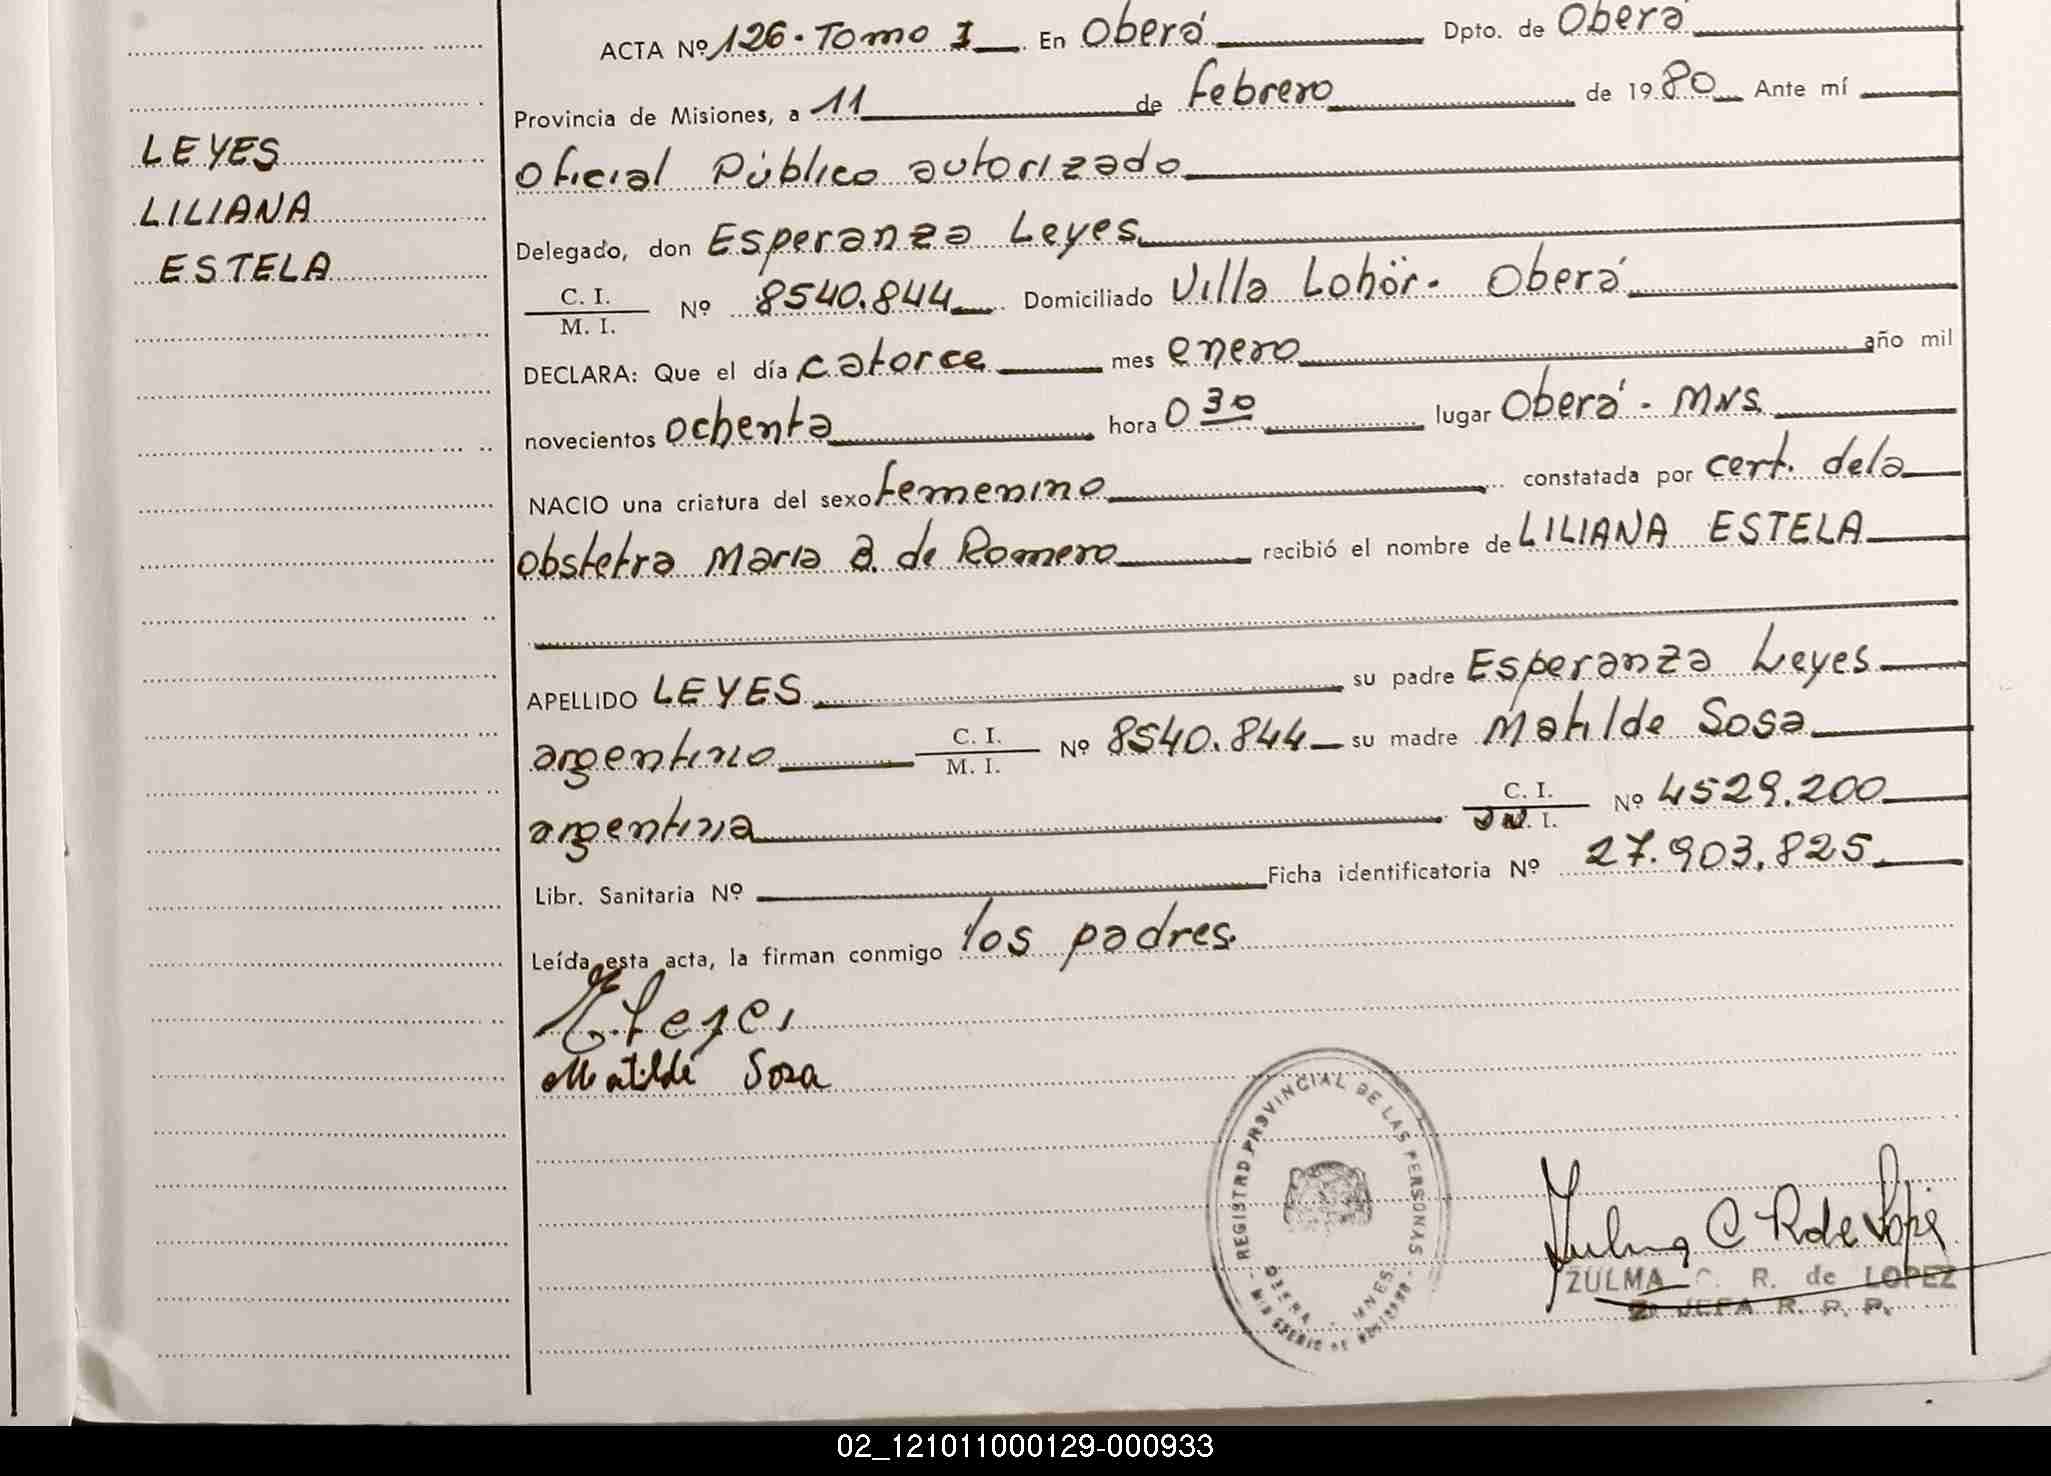 ACTA Nº 126. Tomo I En Oberá Dpto. de Oberá
Provincia de Misiones, a 11 de febrero de 1980 Ante mí
LEYES
Oficial Público autorizado
LILIANA
Delegado, don Esperanza Leyes
ESTELA
C. I. / M. I. Nº 8540.844 Domiciliado Villa Lohör. Oberá
DECLARA: Que el día catorce mes enero año mil
novecientos ochenta hora 0 30 lugar Oberá - Mns.
NACIO una criatura del sexo femenino constatada por cert. dela
obstetra Maria B. de Romero recibió el nombre de LILIANA ESTELA
APELLIDO LEYES su padre Esperanza Leyes
argentino C. I. / M. I. Nº 8540.844 su madre Matilde Sosa
argentina C. I. / M. I. Nº 4529.200
Libr. Sanitaria Nº Ficha identificatoria Nº 27.903.825
Leída esta acta, la firman conmigo los padres.
E. Leyes
Matilde Sosa
REGISTRO PROVINCIAL DE LAS PERSONAS
OBERA - MNES.
Zulma C R de Lopez
ZULMA C. R. de LOPEZ
JEFA R. P. P.
02_121011000129-000933